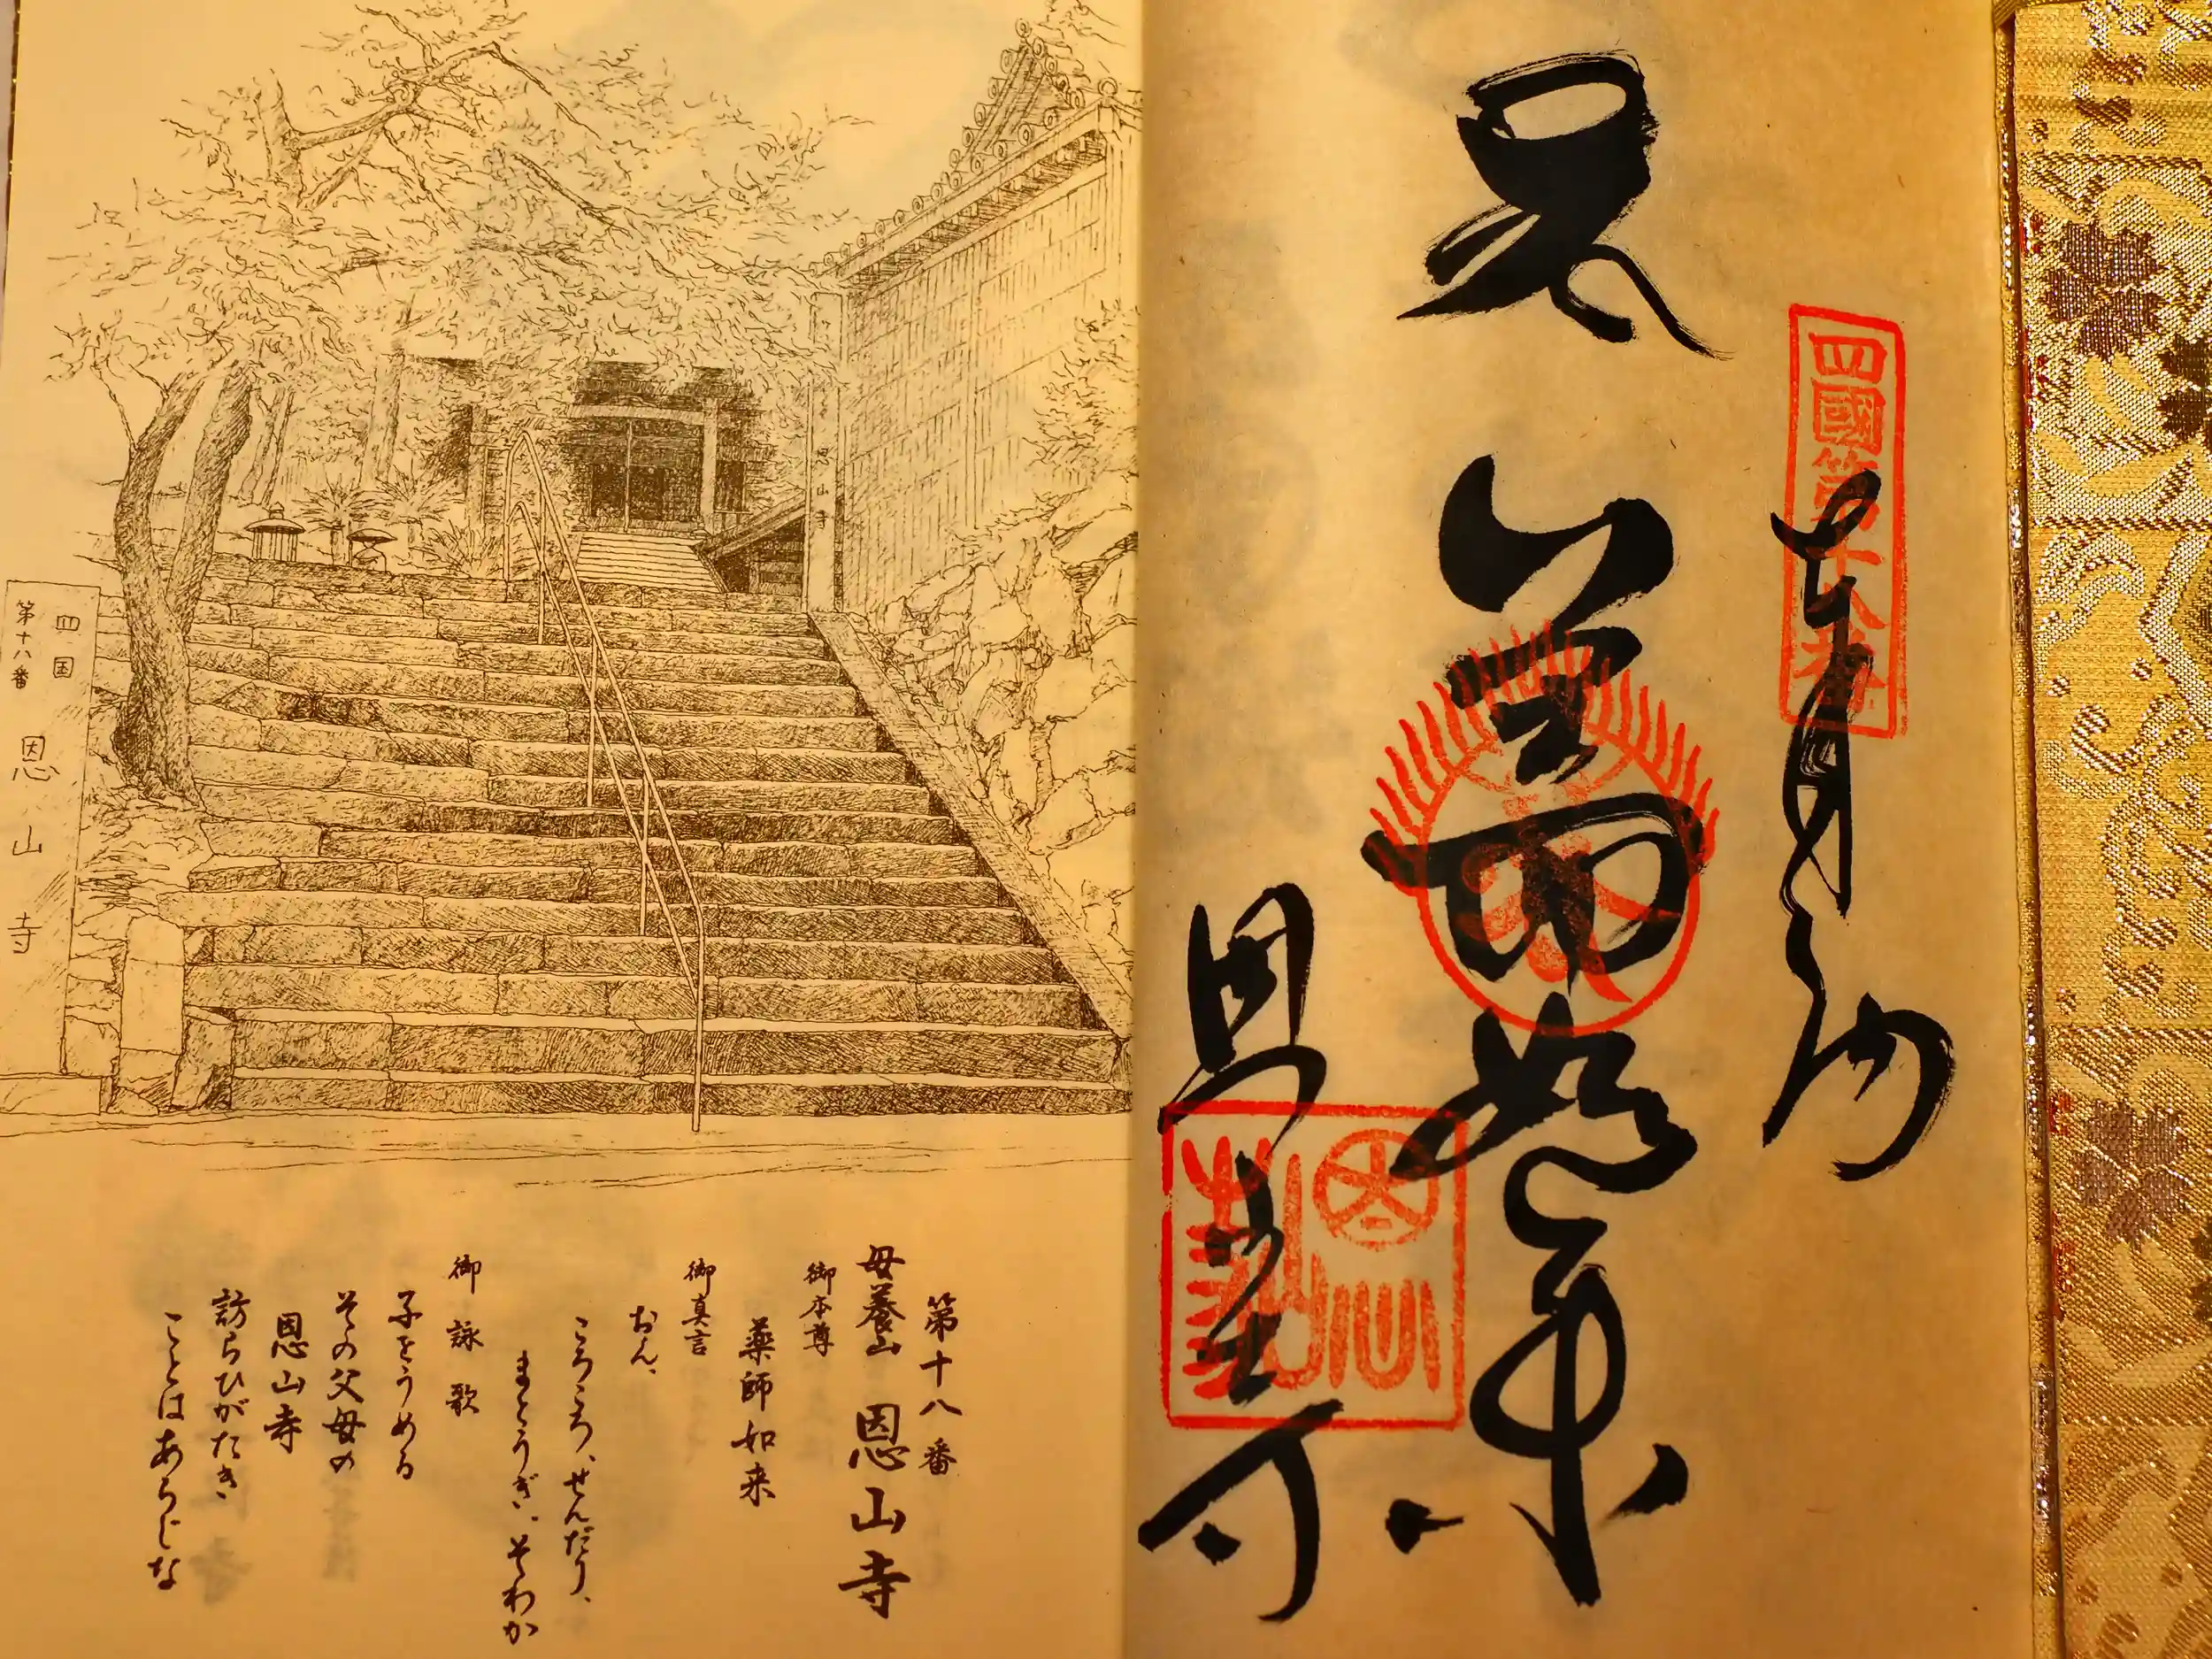 四國第十八番
薬師如来
恩山寺
恩山寺
四国
第十八番
恩山寺
第十八番
母養山 恩山寺
御本尊
薬師如来
御真言
おん、
ころころ、せんだり、
まとうぎ、そわか
御詠歌
子をうめる
その父母の
恩山寺
訪らひがたき
ことはあらじな